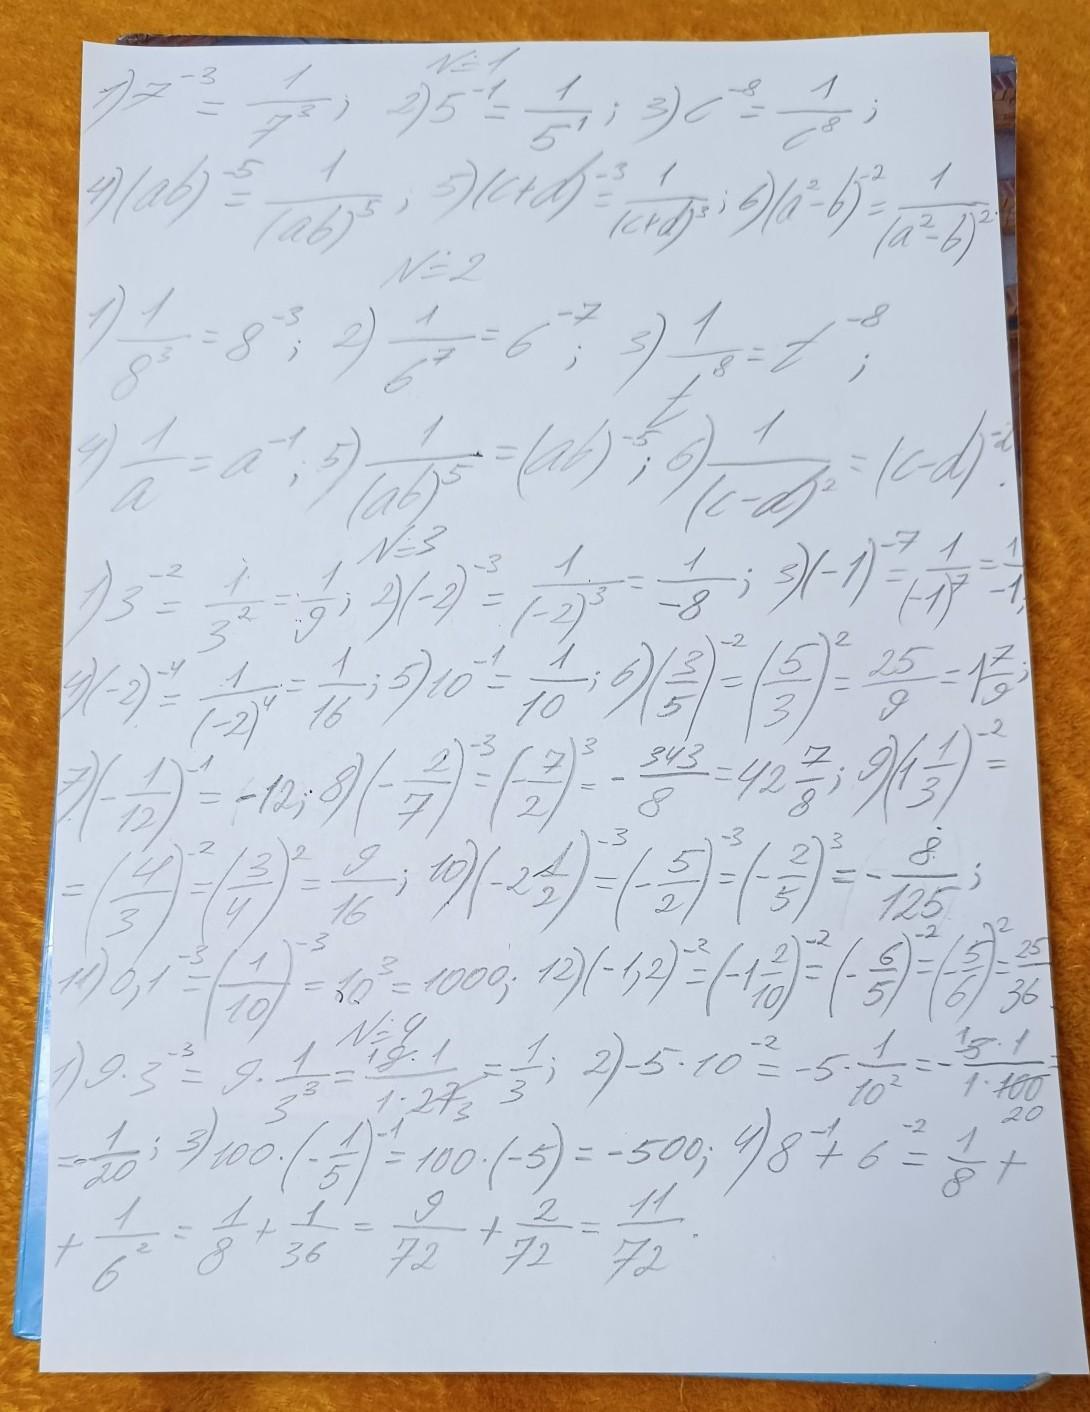 N=1
1) 7^{-3} = \frac{1}{7^3}; 2) 5^{-1} = \frac{1}{5^1}; 3) c^{-8} = \frac{1}{c^8};
4) (ab)^{-5} = \frac{1}{(ab)^5}; 5) (c+d)^{-3} = \frac{1}{(c+d)^3}; 6) (a^2-b)^{-2} = \frac{1}{(a^2-b)^2}.
N=2
1) \frac{1}{8^3} = 8^{-3}; 2) \frac{1}{6^7} = 6^{-7}; 3) \frac{1}{t^8} = t^{-8};
4) \frac{1}{a} = a^{-1}; 5) \frac{1}{(ab)^5} = (ab)^{-5}; 6) \frac{1}{(c-d)^2} = (c-d)^{-2}.
N=3
1) 3^{-2} = \frac{1}{3^2} = \frac{1}{9}; 2) (-2)^{-3} = \frac{1}{(-2)^3} = \frac{1}{-8}; 3) (-1)^{-7} = \frac{1}{(-1)^7} = \frac{1}{-1};
4) (-2)^{-4} = \frac{1}{(-2)^4} = \frac{1}{16}; 5) 10^{-1} = \frac{1}{10}; 6) (\frac{3}{5})^{-2} = (\frac{5}{3})^2 = \frac{25}{9} = 1\frac{7}{9};
7) (-\frac{1}{12})^{-1} = -12; 8) (-\frac{2}{7})^{-3} = (-\frac{7}{2})^3 = -\frac{343}{8} = 42\frac{7}{8}; 9) (1\frac{1}{3})^{-2} =
= (\frac{4}{3})^{-2} = (\frac{3}{4})^2 = \frac{9}{16}; 10) (-2\frac{1}{2})^{-3} = (-\frac{5}{2})^{-3} = (-\frac{2}{5})^3 = -\frac{8}{125};
11) 0,1^{-3} = (\frac{1}{10})^{-3} = 10^3 = 1000; 12) (-1,2)^{-2} = (-1\frac{2}{10})^{-2} = (-\frac{6}{5})^{-2} = (-\frac{5}{6})^2 = \frac{25}{36}.
N=4
1) 9 · 3^{-3} = 9 · \frac{1}{3^3} = \frac{^1 9 · 1}{1 · 27_3} = \frac{1}{3}; 2) -5 · 10^{-2} = -5 · \frac{1}{10^2} = -\frac{^1 5 · 1}{1 · 100_{20}} =
= -\frac{1}{20}; 3) 100 · (-\frac{1}{5})^{-1} = 100 · (-5) = -500; 4) 8^{-1} + 6^{-2} = \frac{1}{8} +
+ \frac{1}{6^2} = \frac{1}{8} + \frac{1}{36} = \frac{9}{72} + \frac{2}{72} = \frac{11}{72}.